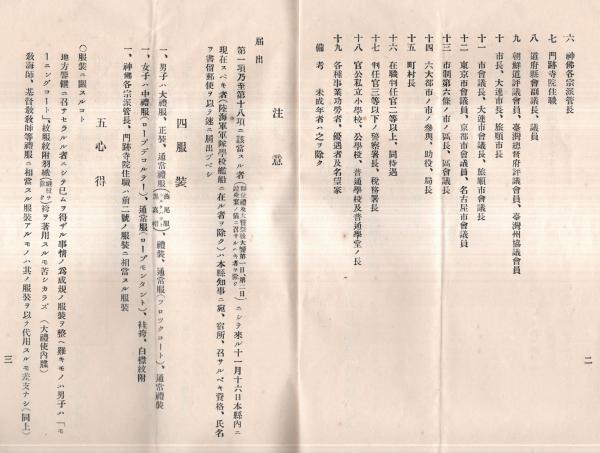 六 神佛各宗派管長
七 門跡寺院住職
八 道府縣會副議長、議員
九 朝鮮道評議會員、臺灣總督府評議會員、臺灣州協議會員
十 市長、大連市長、旅順市長
十一 市會議長、大連市會議長、旅順市會議長
十二 東京市會議員、京都市會議員、名古屋市會議員
十三 市制第六條ノ市ノ區長、區會議長
十四 六大都市ノ市ノ參與、助役、局長
十五 町村長
十六 在職判任官二等以上、同待遇
十七 判任官三等以下ノ警察署長、稅務署長
十八 官公私立小學校、公學校、普通學校及普通學堂ノ長
十九 各種事業功勞者、優遇者及名望家
備考 未成年者ハ之ヲ除ク
二
注意
屆出
第一項乃至第十八項ニ該當スル者ニシテ來ル十一月十六日本縣內ニ
現在スベキ者(陸海軍軍隊學校艦船ニ在ル者ヲ除ク)ハ本縣知事ニ宛、宿所、召サルベキ資格、氏名
ヲ書留郵便ヲ以テ速ニ屆出ヅベシ
四 服裝
一、男子ハ大禮服、正裝、通常服(燕尾服)、禮裝、通常服(フロックコート)、通常禮裝
一、女子ハ中禮服(ローブデコルテー)、通常服(ローブモンタント)、袿袴、白襟紋附
一、神佛各宗派管長、門跡寺院住職ハ前二號ノ服裝ニ相當スル服裝
五 心得
〇服裝ニ關スルコト
地方饗饌ニ召サセラルル者ニシテ已ムヲ得ザル事情ノ爲成規ノ服裝ヲ整ヘ難キモノハ男子ハ「モ
ーニングコート」、紋服紋附羽織袴ヲ著用スルモ苦シカラズ (大禮使內牒)
敎誨師、基督敎敎師等禮服ニ相當スル服裝アルモノハ其ノ服裝ヲ以テ代用スルモ差支ナシ(同上)
三